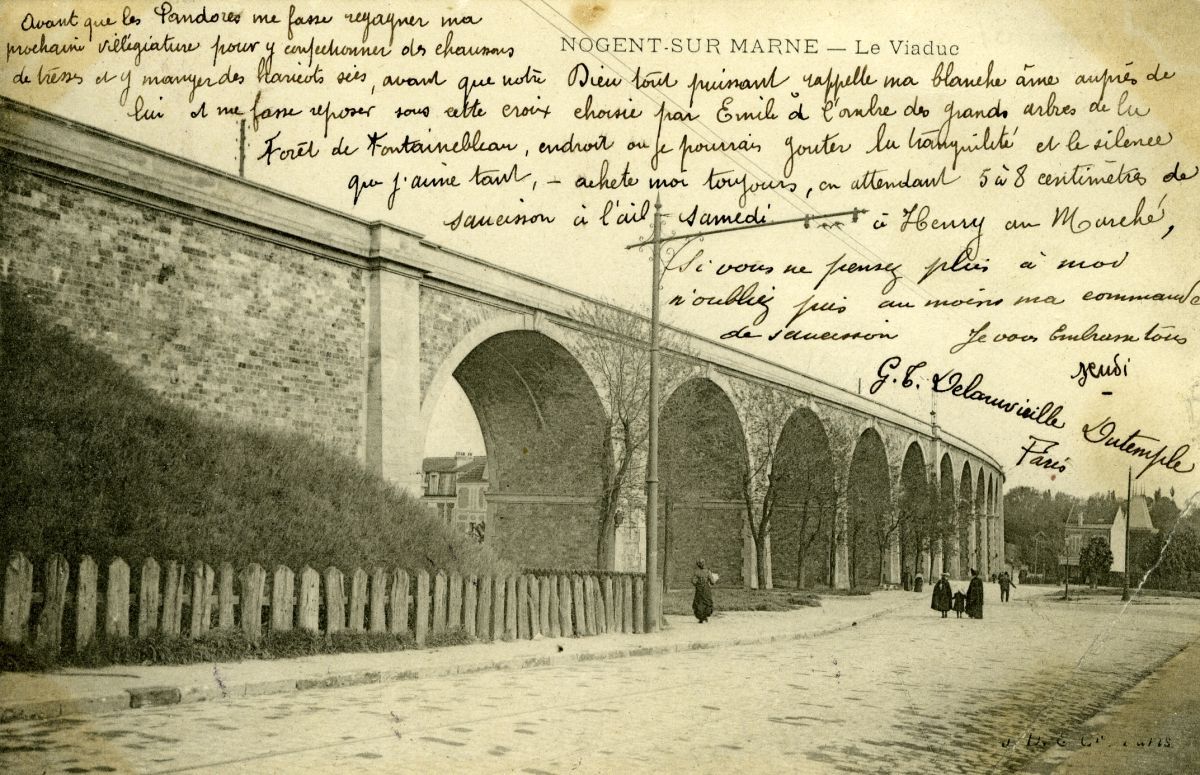 Avant que les Pandores me fasse regagner ma
prochaine villégiature pour y confectionner des chaussons
NOGENT-SUR MARNE — Le Viaduc
de tresses et y manger des haricots secs, avant que notre Dieu tout puissant rappelle ma blanche âme auprès de
lui et me fasse reposer sous cette croix choisie par Emile à l'ombre des grands arbres de la
Forêt de Fontainebleau, endroit ou je pourrais gouter la tranquilité et le silence
que j'aime tant, - achete moi toujours, en attendant 5 à 8 centimètres de
saucisson à l'ail - samedi à Henry au Marché,
Si vous ne pensez plus à moi
n'oubliez pas au moins ma commande
de saucisson Je vous Embrasse tous
Jeudi
G. T. Delarivieille Dutemple
Paris